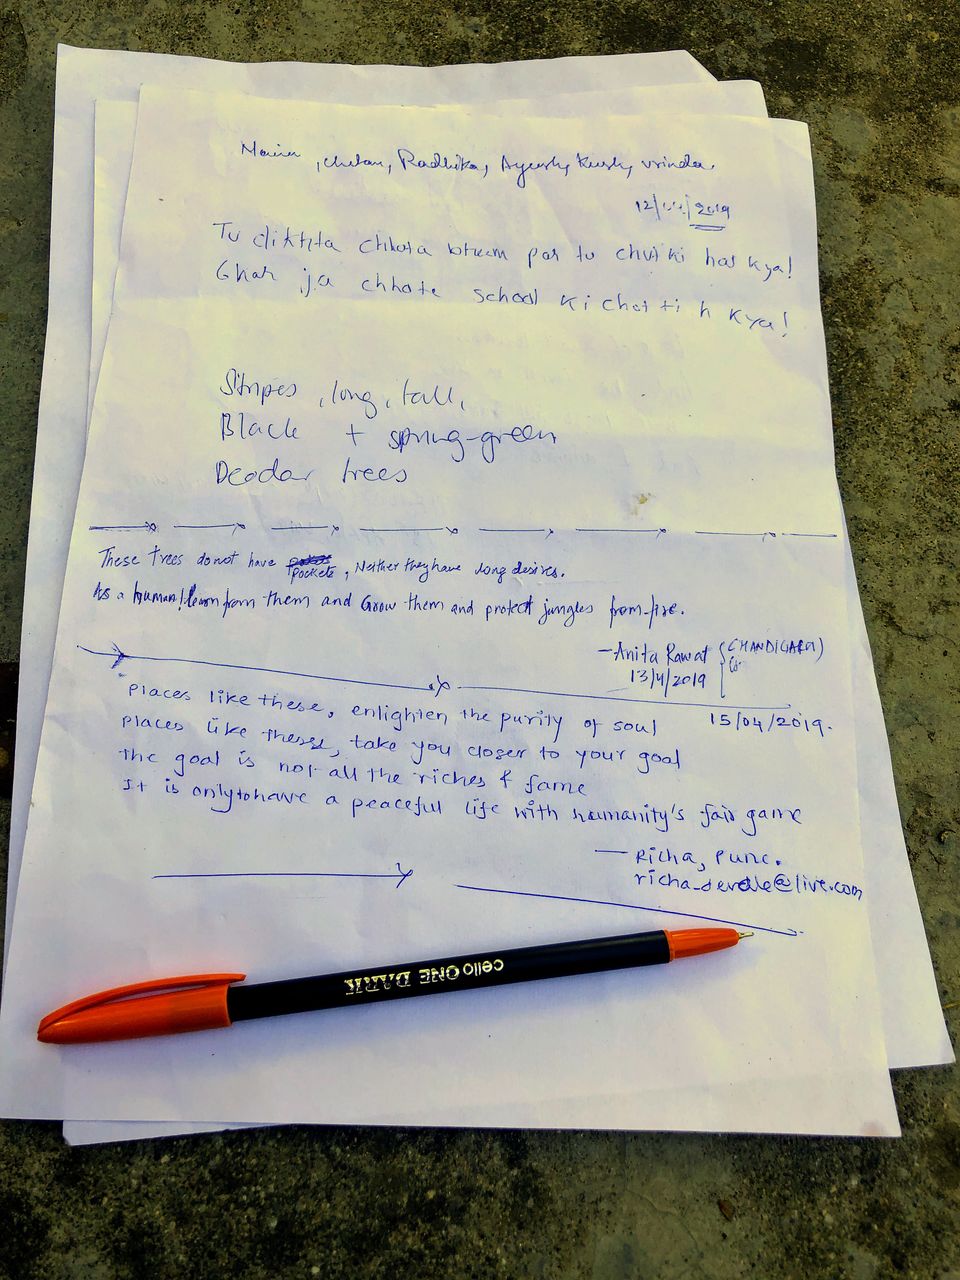 Maina, Chetan, Radhika, Ayush, Kush, Vrinda.
12/04/2019
Tu dikhta chhota bheem par tu chutki hai kya!
Ghar ja chhote school ki chotti h kya!
Stripes, long, tall,
Black + spring-green
Deodar trees
These trees do not have pockets, Neither they have long desires.
As a human! learn from them and Grow them and protect jungles from fire.
- Anita Rawat (CHANDIGARH)
13/4/2019
15/04/2019.
Places like these, enlighten the purity of soul
Places like these, take you closer to your goal
The goal is not all the riches & fame
It is only to have a peaceful life with humanity's fair game
— Richa, Pune.
@live.com
cello ONE DARK